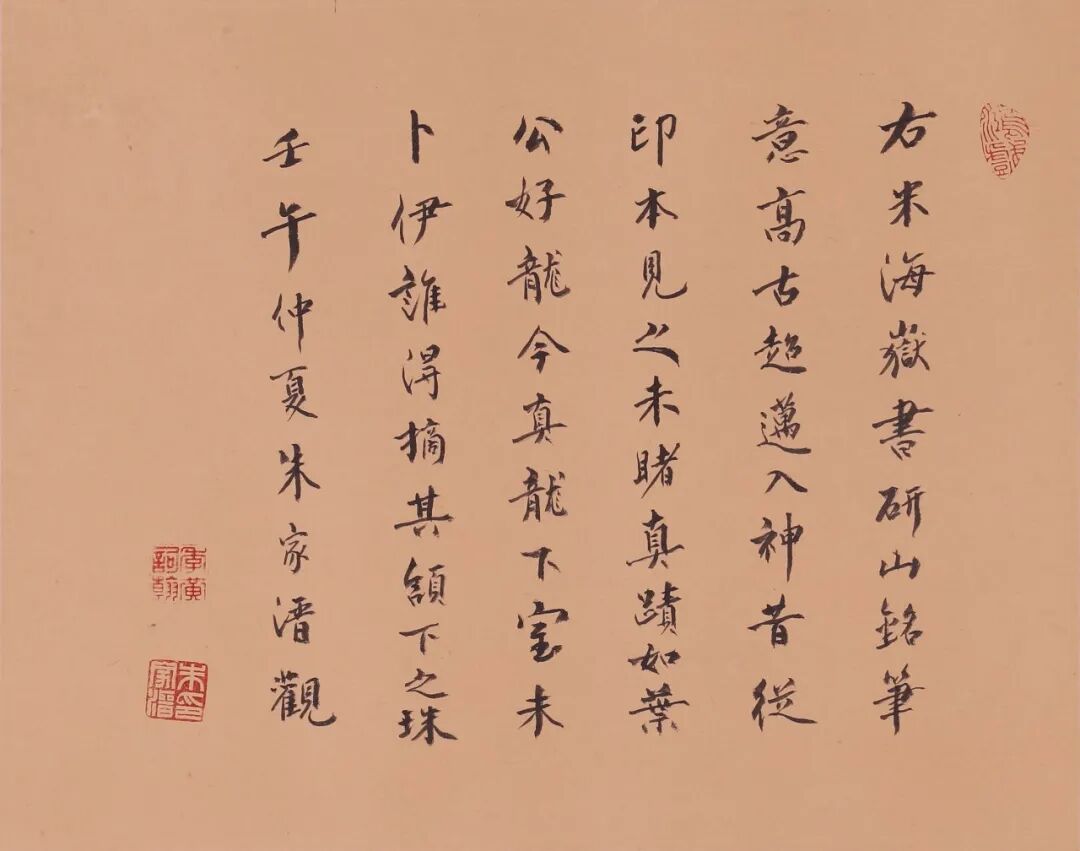 右米海嶽書研山銘筆
意高古超邁入神昔從
印本見之未睹真蹟如葉
公好龍今真龍下室未
卜伊誰得摘其頷下之珠
壬午仲夏朱家溍觀
季黃
翰
朱
家溍